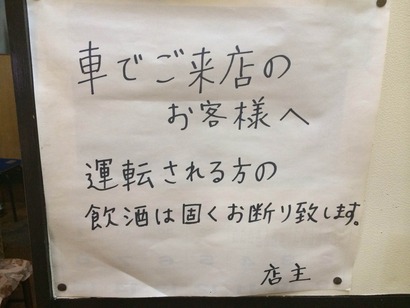 車でご来店の
お客様へ
運転される方の
飲酒は固くお断り致します。
店主